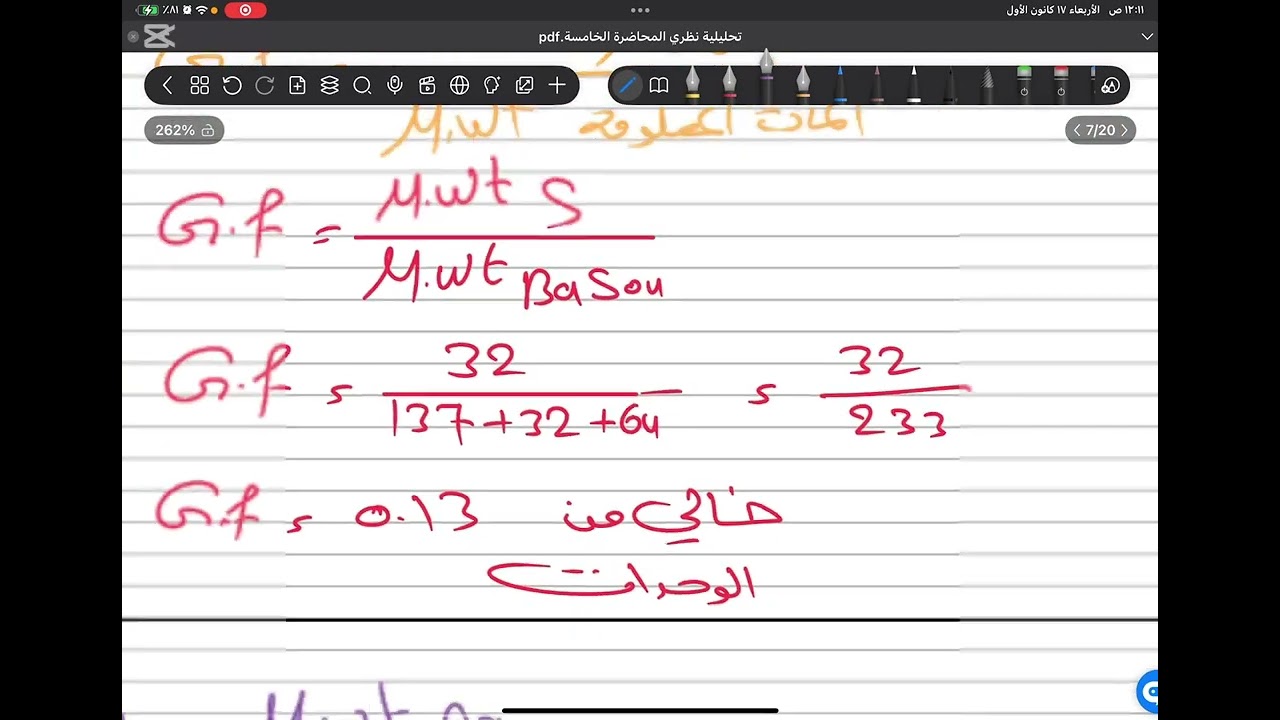 ١٢:١١ ص الأربعاء ١٧ كانون الأول ٨١٪
تحليلية نظري المحاضرة الخامسة.pdf
262% 7/20
M.wt المادة المعلومة
G.f = M.wt S / M.wt BaSO4
G.f = 32 / 137+32+64 = 32 / 233
G.f = 0.13 خالي من
الوحدات
M.wt